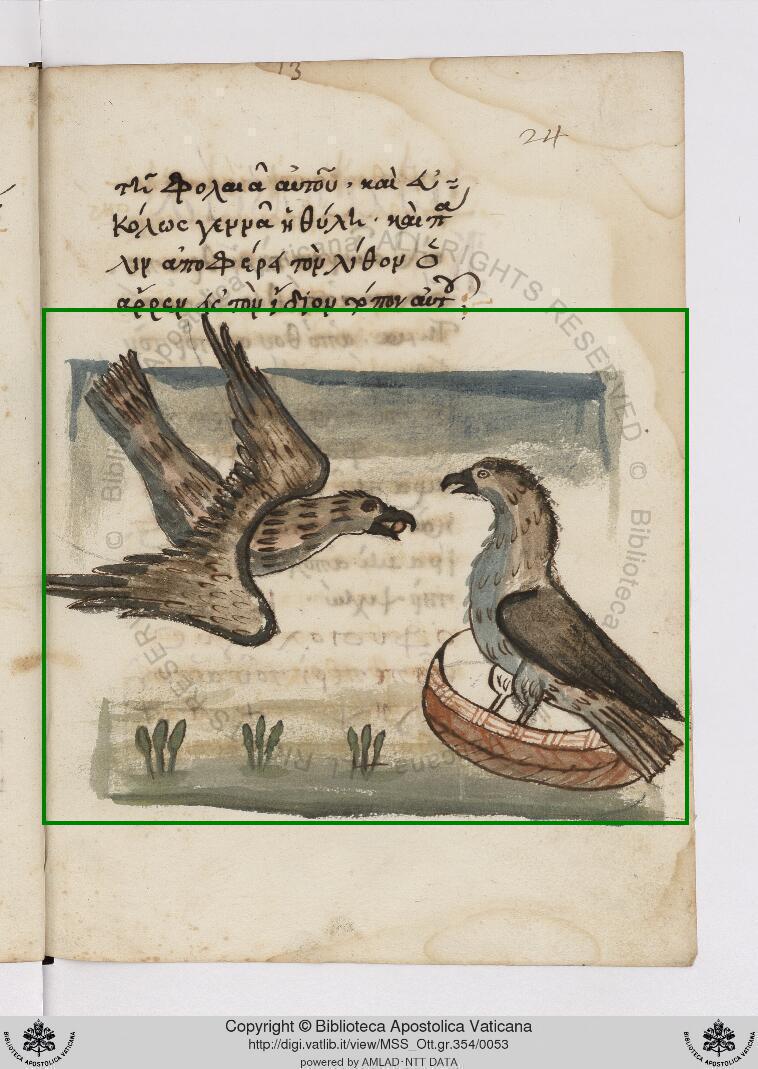 13
24
τῇ φωλαιᾶ αὐτοῦ. καὶ εὐ=
κόλως γεννᾶ ἡ θύλη. καὶ πά
λιν ἀποφέρει τὸν λίθον ὁ
ἄρρεν εἰς τὸν ἴδιον τόπον αὐτοῦ
Copyright © Biblioteca Apostolica Vaticana
http://digi.vatlib.it/view/MSS_Ott.gr.354/0053
powered by AMLAD·NTT DATA
BIBLIOTECA APOSTOLICA VATICANA
BIBLIOTECA APOSTOLICA VATICANA